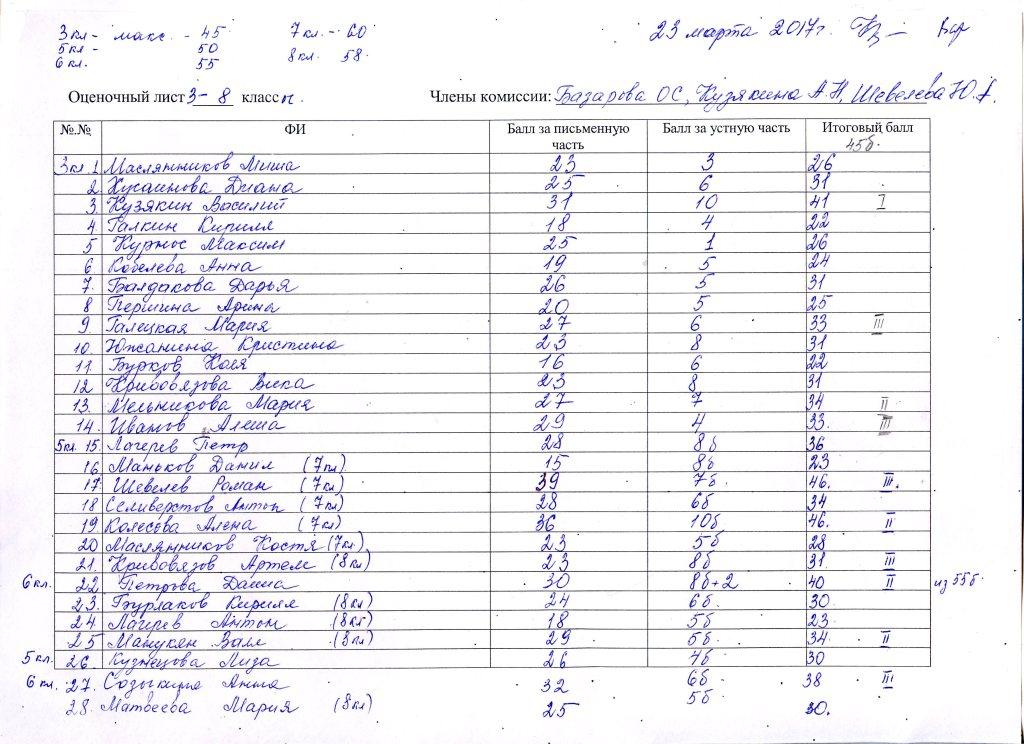 3 кл - макс. - 45 7 кл. - 60 23 марта 2017г.
5 кл - 50 8 кл. 58.
6 кл. 55
Оценочный лист 3-8 класс Члены комиссии: Базарова ОС, Кузякина А.Н, Шевелева Ю.
№.№ ФИ Балл за письменную часть Балл за устную часть Итоговый балл 45б.
3кл 1 Маслянников Миша 23 3 26
2 Хусаинова Диана 25 6 31
3. Кузякин Василий 31 10 41 I
4. Галкин Кирилл 18 4 22
5 Курнос Максим 25 1 26
6 Кобелева Анна 19 5 24
7. Балдакова Дарья 26 5 31
8 Першина Арина 20 5 25
9 Галецкая Мария 27 6 33 III
10. Южанина Кристина 23 8 31
11 Бурков Коля 16 6 22
12 Кривовязова Вика 23 8 31
13. Мельникова Мария 27 7 34 II
14. Иванов Алеша 29 4 33. III
5кл. 15. Лагерев Петр 28 8б 36
16 Маньков Данил (7кл) 15 8б 23
17. Шевелев Роман (7кл) 39 7б 46. III.
18 Селиверстов Антон (7кл) 28 6б 34
19 Колесова Алена (7кл) 36 10б 46. II
20 Маслянников Костя (7кл) 23 5б 28
21. Кривовязов Артем (8кл) 23 8б 31 III
6 кл. 22. Петрова Даша 30 8б+2 40 II из 55б
23. Бурлаков Кирилл (8кл) 24 6б 30
24 Лагерев Антон (8кл) 18 5б 23
25 Манукян Ваге (8кл) 29 5б 34 II
5 кл. 26. Кузнецова Лиза 26 4б 30
6 кл. 27. Созыкина Анна 32 6б 38 III
28. Матвеева Мария (8кл) 25 5б 30.